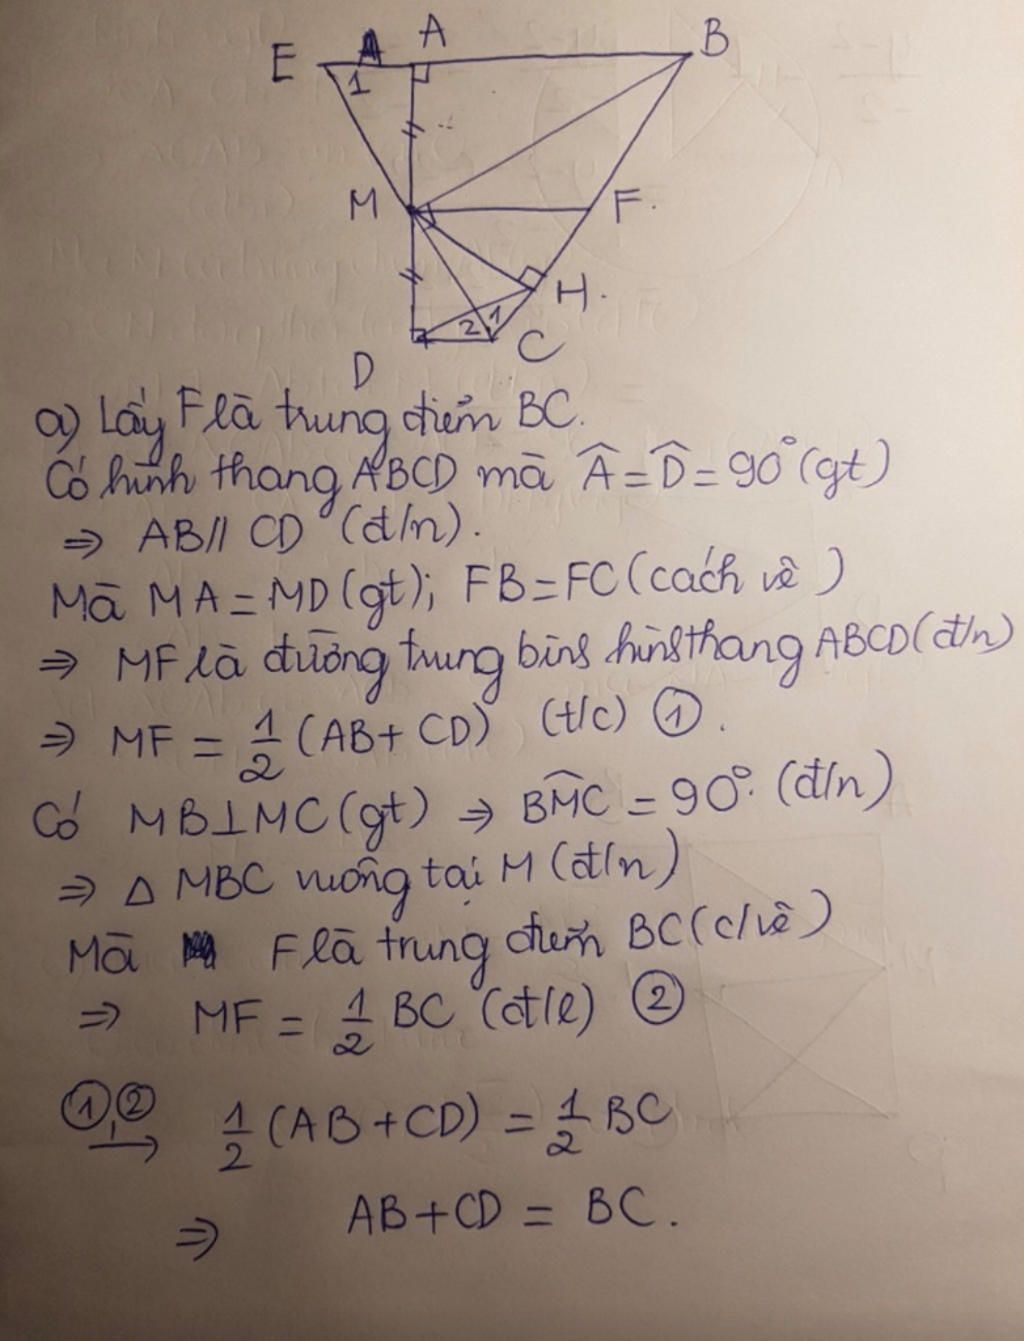 E A B
1
M F.
H.
2 1
D C
a) Lấy F là trung điểm BC.
Có hình thang ABCD mà Â = D̂ = 90° (gt)
⇒ AB // CD (đ/n).
Mà MA = MD (gt); FB = FC (cách vẽ)
⇒ MF là đường trung bình hình thang ABCD (đ/n)
⇒ MF = 1/2 (AB + CD) (t/c) ①.
Có MB ⊥ MC (gt) ⇒ BMC = 90°. (đ/n)
⇒ △ MBC vuông tại M (đ/n)
Mà F là trung điểm BC (c/vẽ)
⇒ MF = 1/2 BC (đ/l) ②
①,② → 1/2 (AB + CD) = 1/2 BC
⇒ AB + CD = BC.